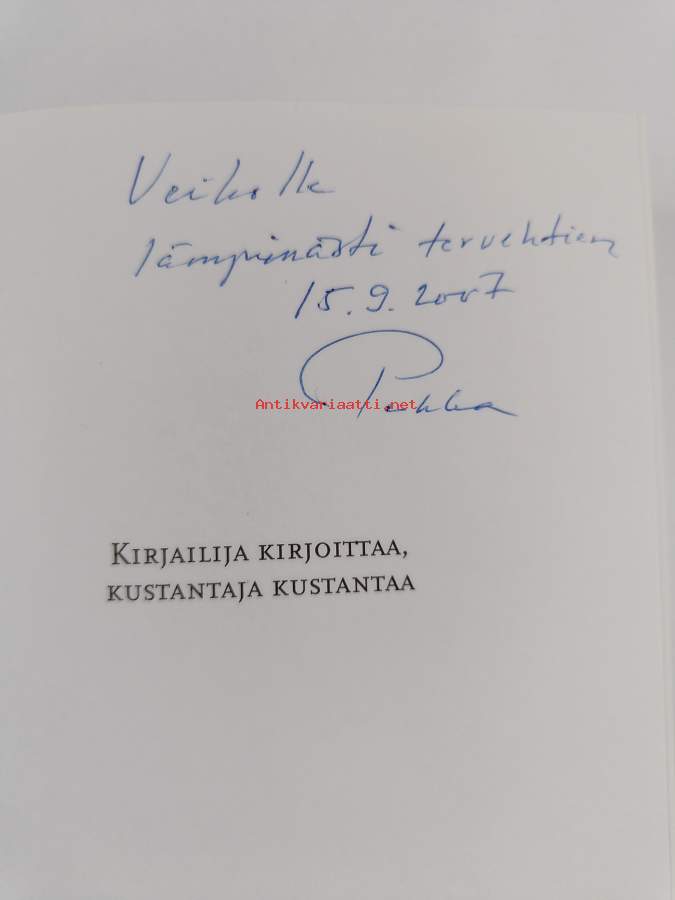 Veikolle
lämpimästi tervehtien
15.9.2007
Pekka
Antikvariaatti.net
KIRJAILIJA KIRJOITTAA,
KUSTANTAJA KUSTANTAA